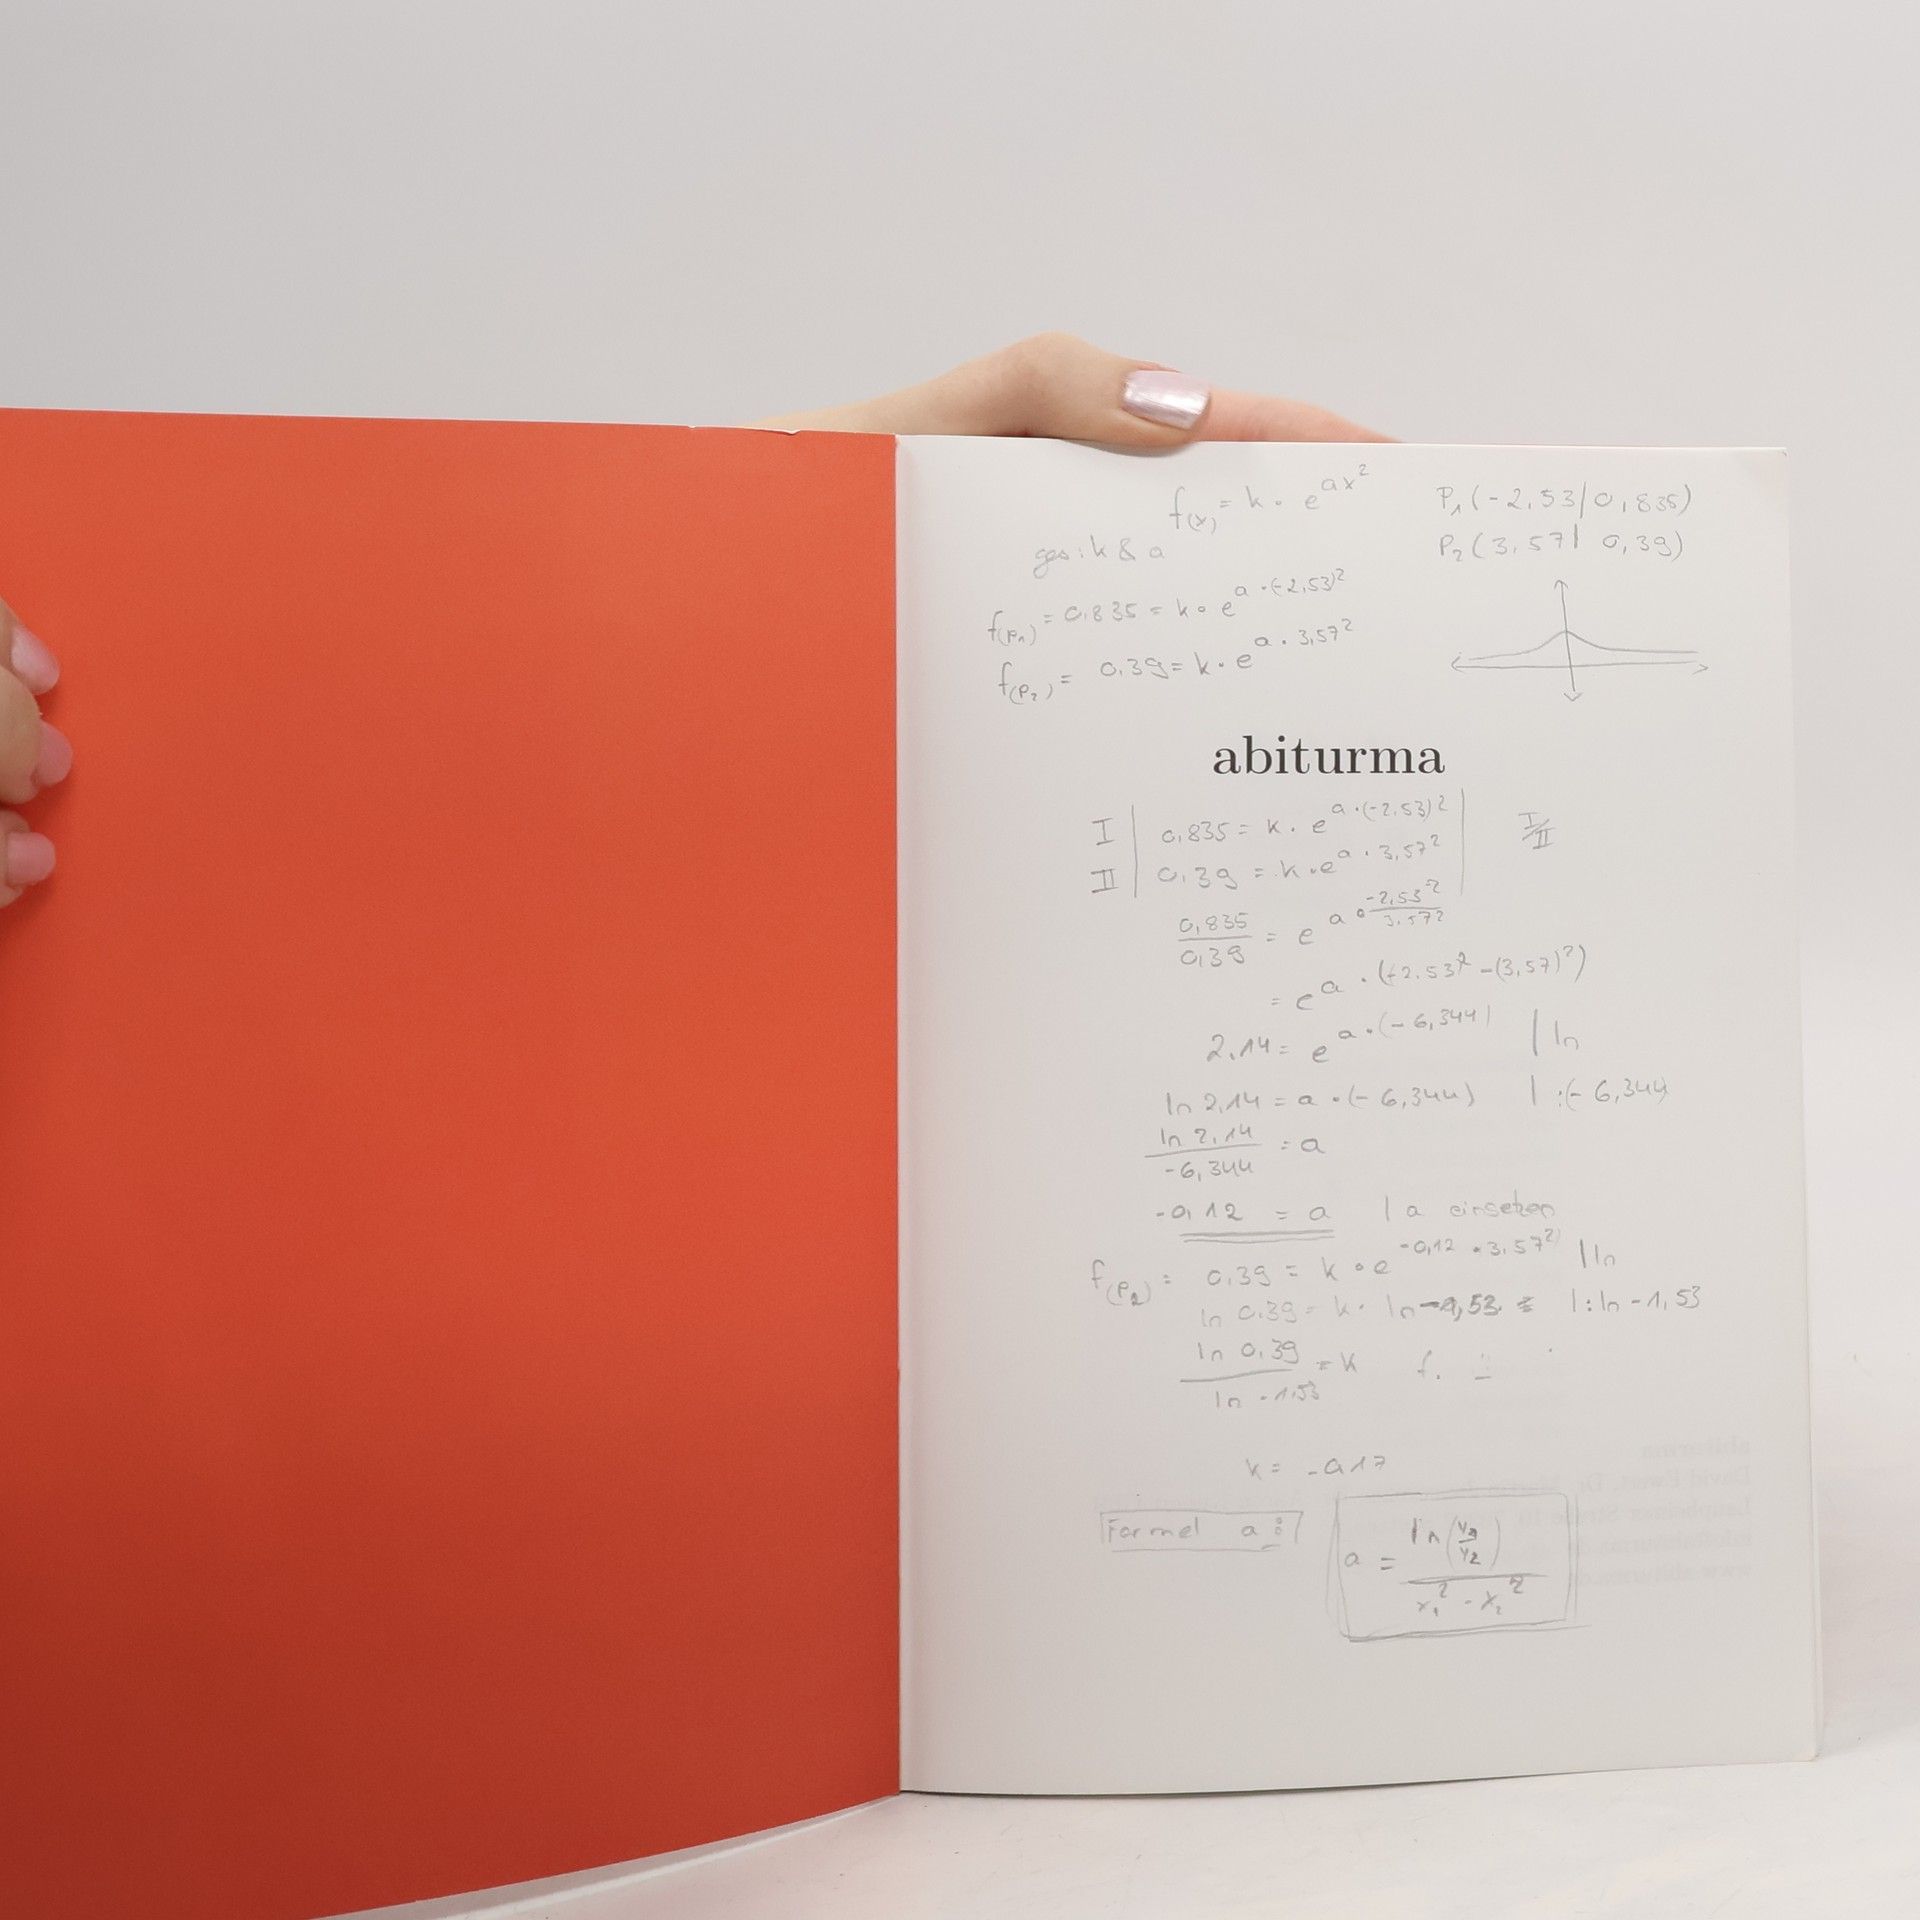 f(x) = k · e^ax²
P₁(-2,53/0,835)
ges: k & a
P₂(3,57| 0,39)
f(P₁) = 0,835 = k · e^a·(-2,53)²
f(P₂) = 0,39 = k · e^a · 3,57²
abiturma
I | 0,835 = k · e^a·(-2,53)² | I/II
II | 0,39 = k · e^a · 3,57² |
0,835/0,39 = e^a · -2,53²/3,57²
= e^a · (-2,53² - (3,57)²)
2,14 = e^a·(-6,344) | ln
ln 2,14 = a · (- 6,344) | :(- 6,344)
ln 2,14/-6,344 = a
-0,12 = a | a einsetzen
f(P₂) = 0,39 = k · e^-0,12 · 3,57² | ln
ln 0,39 = k · ln -1,53 | : ln - 1,53
ln 0,39/ln -1,53 = k f.
k = -0,17
Formel a:
a = ln(y₁/y₂)/x₁² - x₂²